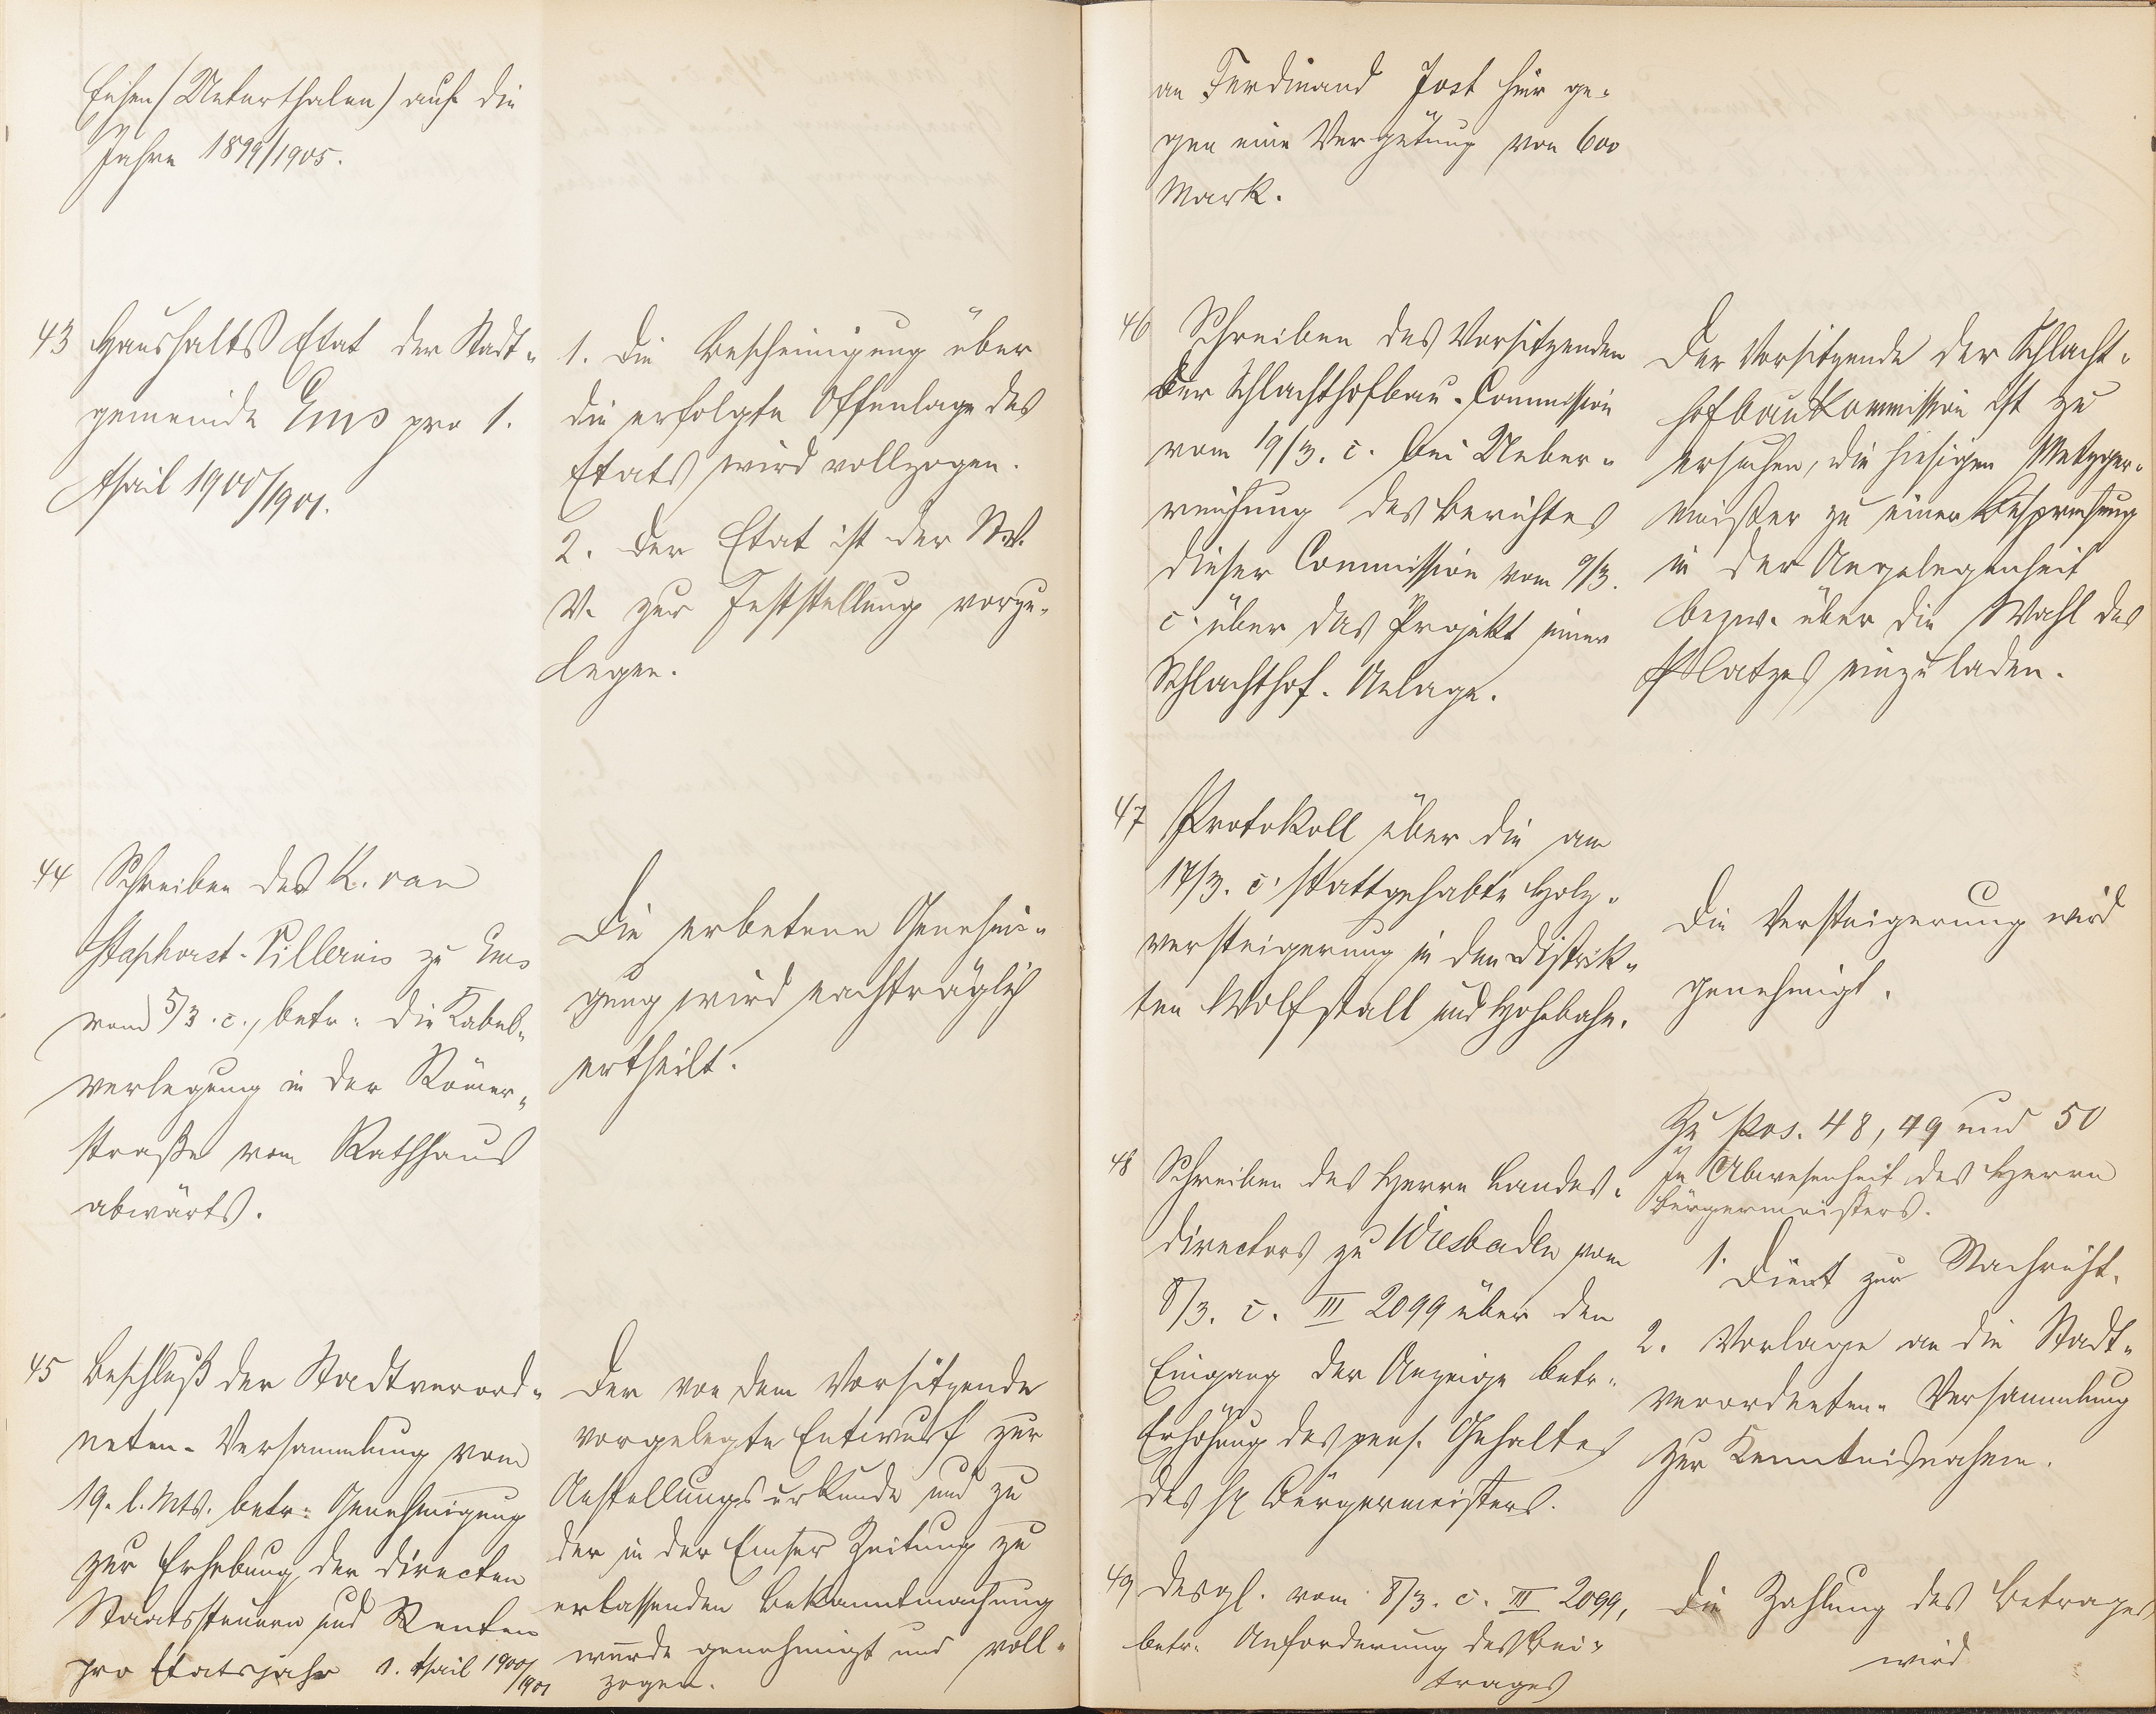 Eisen (Unterthalen) auf die
Jahre 1899/1905.
43 Haushalts Etat der Stadt-
gemeinde Ems pro 1.
April 1900/1901.
1. Die Bescheinigung über
die erfolgte Offenlage des
Etats wird vollzogen.
2. Der Etat ist der St.V.
V. zur Feststellung vorzu-
legen.
44 Schreiben des K. van
Staphorst-Pillernis zu Ems
vom 5/3. c., betr. die Kabel-
verlegung in der Römer-
straße vom Rathhaus
abwärts.
Die erbetene Genehmi-
gung wird nachträglich
ertheilt.
45 Beschluß der Stadtverord-
neten-Versammlung vom
19. l. Mts. betr. Genehmigung
zur Erhebung der directen
Staatssteuern und Renten
pro Etatsjahr 1. April 1900/1901
Der von dem Vorsitzende
vorgelegte Entwurf zur
Anstellungsurkunde und zu
der in der Emser Zeitung zu
erlassenden Bekanntmachung
wurde genehmigt und voll-
zogen.
an Ferdinand Jost hier ge-
gen eine Vergütung von 600
Mark.
46 Schreiben des Vorsitzenden
der Schlachthofbau-Commission
vom 19/3. c. bei Ueber-
reichung des Berichtes
dieser Commission vom 9/3.
c. über das Projekt einer
Schlachthof-Anlage.
Der Vorsitzende der Schlacht-
hofbaukommission ist zu
ersuchen, die hiesigen Metzger-
meister zu einer Besprechung
in der Angelegenheit
bezw. über die Wahl des
Platzes einzuladen.
47 Protokoll über die am
17/3. c. stattgehabte Holz-
versteigerung in den Distrik-
ten Wolfstall und Hohebahn.
Die Versteigerung wird
genehmigt.
48 Schreiben des Herrn Landes-
directors zu Wiesbaden vom
8/3. c. III 2099 über den
Eingang der Anzeige betr.
Erhöhung des pens. Gehaltes
des H. Bürgermeisters.
Zu Pos. 48, 49 und 50
In Abwesenheit des Herrn
Bürgermeisters.
1. Dient zur Nachricht.
2. Vorlage an die Stadt-
verordneten-Versammlung
zur Kenntnisnahme.
49 Desgl. vom 8/3. c. III 2099,
betr. Anforderung des Bei-
trages
Die Zahlung des Betrages
wird